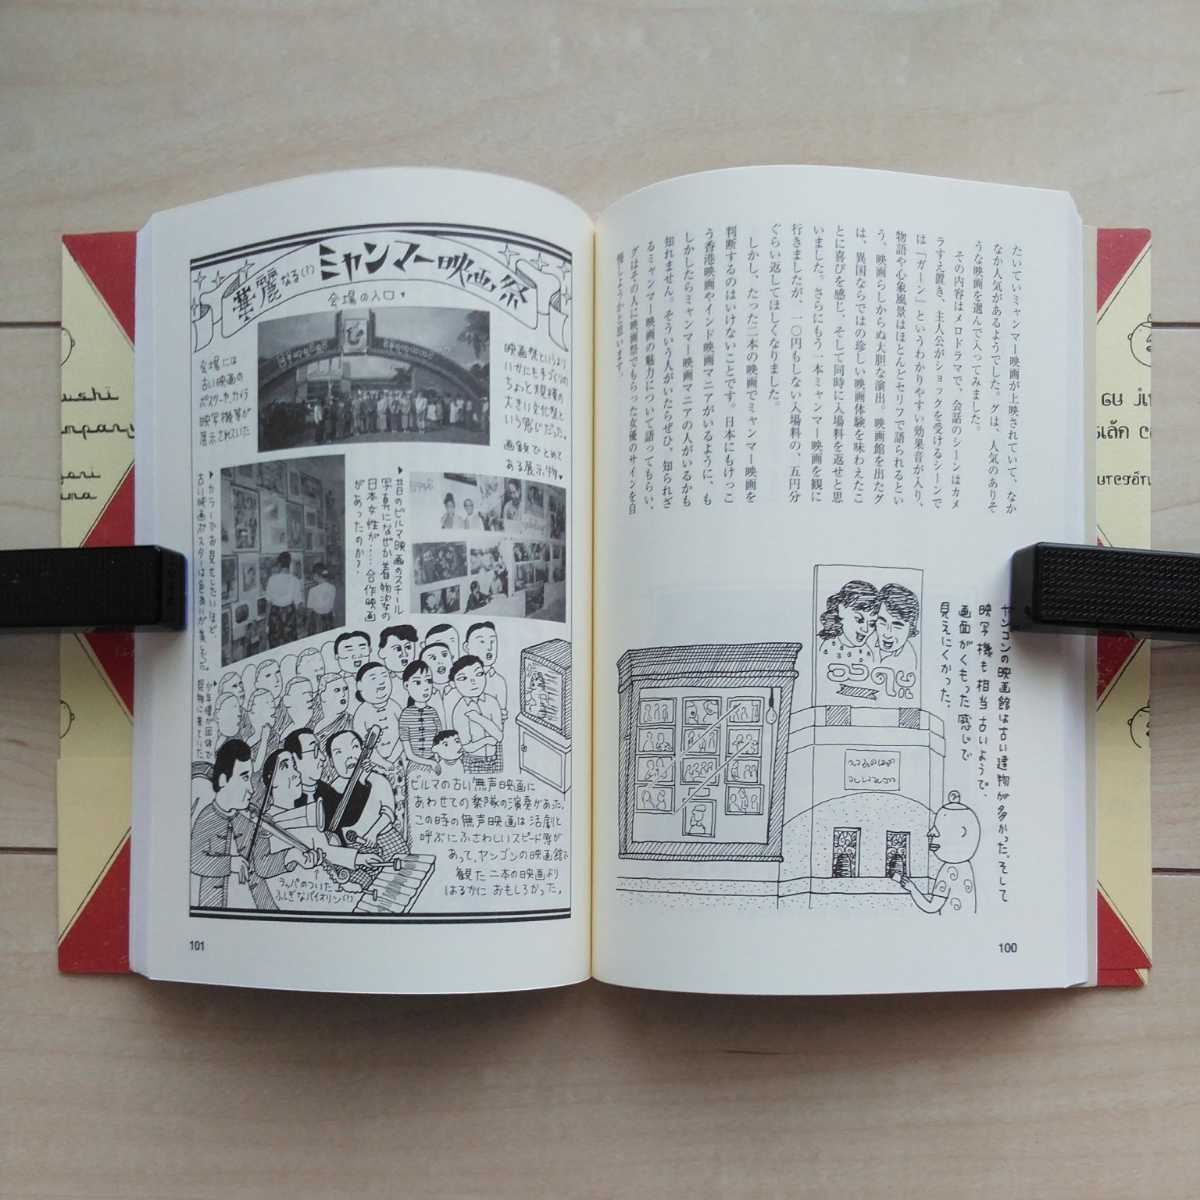 たいていミャンマー映画が上映されていて、なか
なか人気があるようでした。グは、人気のありそ
うな映画を選んで入ってみました。
その内容はメロドラマで、会話のシーンはカメ
ラすえ置き、主人公がショックを受けるシーンで
は「ガーン」というわかりやすい効果音が入り、
物語や心象風景はほとんどセリフで語られるとい
う。映画らしからぬ大胆な演出。映画館を出たグ
は、異国ならではの珍しい映画体験を味わえたこ
とに喜びを感じ、そして同時に入場料を返せと思
いました。さらにもう一本ミャンマー映画を観に
行きましたが、一〇円もしない入場料の、五円分
ぐらい返してほしくなりました。
しかし、たった二本の映画でミャンマー映画を
判断するのはいけないことです。日本にもけっこ
う香港映画やインド映画マニアがいるように、も
しかしたらミャンマー映画マニアの人がいるかも
知れません。そういう人がいたらぜひ、知られざ
るミャンマー映画の魅力について語ってもらい、
グはその人に映画祭でもらった女優のサインを自
慢しようかと思います。
ヤンゴンの映画館は古い建物が多かった。そして
映写機も相当古いようで、
画面がくもった感じで
見えにくかった。
100
華麗なる(!?)ミャンマー映画祭
会場の入口
映画祭というより
いかにも手づくりの
ちょっと規模の
大きい文化祭と
いう感じだった。
会場には
古い映画の
ポスターや、カメラ
映写機等が
展示されていた
画鋲でとめて
ある展示物
昔のビルマ映画のスチール
写真になぜか着物姿の
日本女性が……合作映画
があったのか?
カラーでお見せしたいほど、
古い映画ポスターは色あいが美しかった。
少年僧が団体で
見物に来ていた
ビルマの古い無声映画に
あわせての楽隊の演奏があった。
この時の無声映画は活劇と
呼ぶにふさわしいスピード感が
あって、ヤンゴンの映画館で
観た二本の映画より
はるかにおもしろかった。
ラッパのついた
ふしぎなバイオリン(?)
101